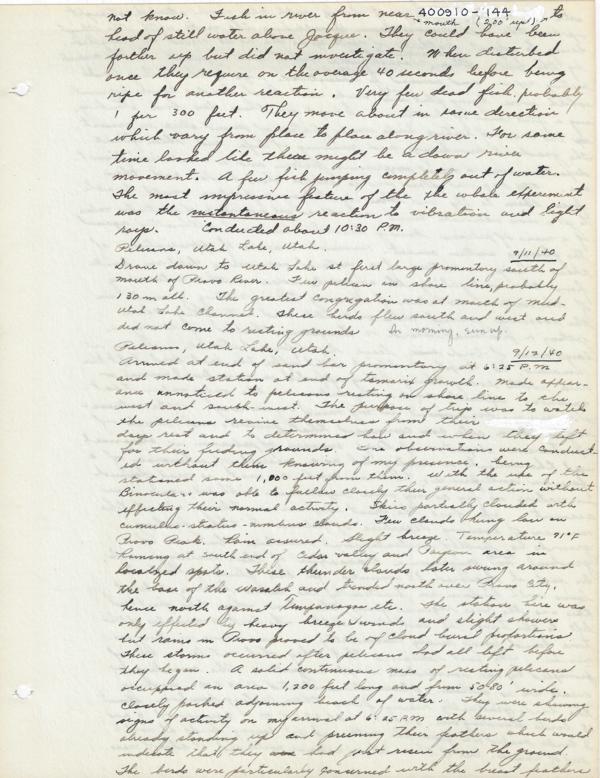 400910-144
not know. Fish in river from near mouth (200 yds) to
head of still water above Jacque. They could have been
farther up but did not investigate. When disturbed
once they require on the average 40 seconds before being
ripe for another reaction. Very few dead fish, probably
1 per 300 feet. They move about in same direction
which vary from place to place along river. For some
time looked like there might be a down river
movement. A few fish jumping completely out of water.
The most impressive feature of the the whole experiment
was the instantaneous reaction to vibration and light
rays. Conducted about 10:30 P.M.
Pelicans, Utah Lake, Utah.
9/11/40
Drove down to Utah Lake at first large promontory south of
mouth of Provo River. Few pelican on shore line, probably
130 in all. The greatest congregation was at mouth of mud-
Utah Lake Channel. These birds flew south and west and
did not come to resting grounds In morning, sun up.
Pelicans, Utah Lake, Utah.
9/12/40
Arrived at end of sand bar promontory at 6:25 P.M
and made station at end of tamarix growth. Made appear-
ance unnoticed to pelicans resting on shore line to the
west and south-west. The purpose of trip was to watch
the pelicans revive themselves from their
days rest and to determine how and when they left
for their feeding grounds. observations were conduct-
ed without them knowing of my presence, being
stationed some 1,000 feet from them. With the use of the
Binoculars was able to follow closely their general action without
effecting their normal activity. Skies partially clouded with
cumulus-stratus-nimbus clouds. Few clouds hung low on
Provo Peak. Rain assured. Slight breeze. Temperature 71°F
Raining at south end of Cedar valley and Payson area in
localized spots. These thunder clouds later swung around
the base of the Wasatch and tended north over Provo City,
hence north against Timpanogas etc. The station here was
only effected by heavy breeze & winds and slight showers
but rains in Provo proved to be of cloud burst proportions
These storms occurred after pelicans had all left before
they began. A solid continuous mass of resting pelicans
occuppied an area 1,200 feet long and from 50-80' wide,
closely packed adjoining beach of water. They were showing
signs of activity on my arrival at 6:25 P.M with several birds
already standing up and preening their feathers which would
indicate that they had just risen from the ground.
The birds were particularly concerned with the breast feathers